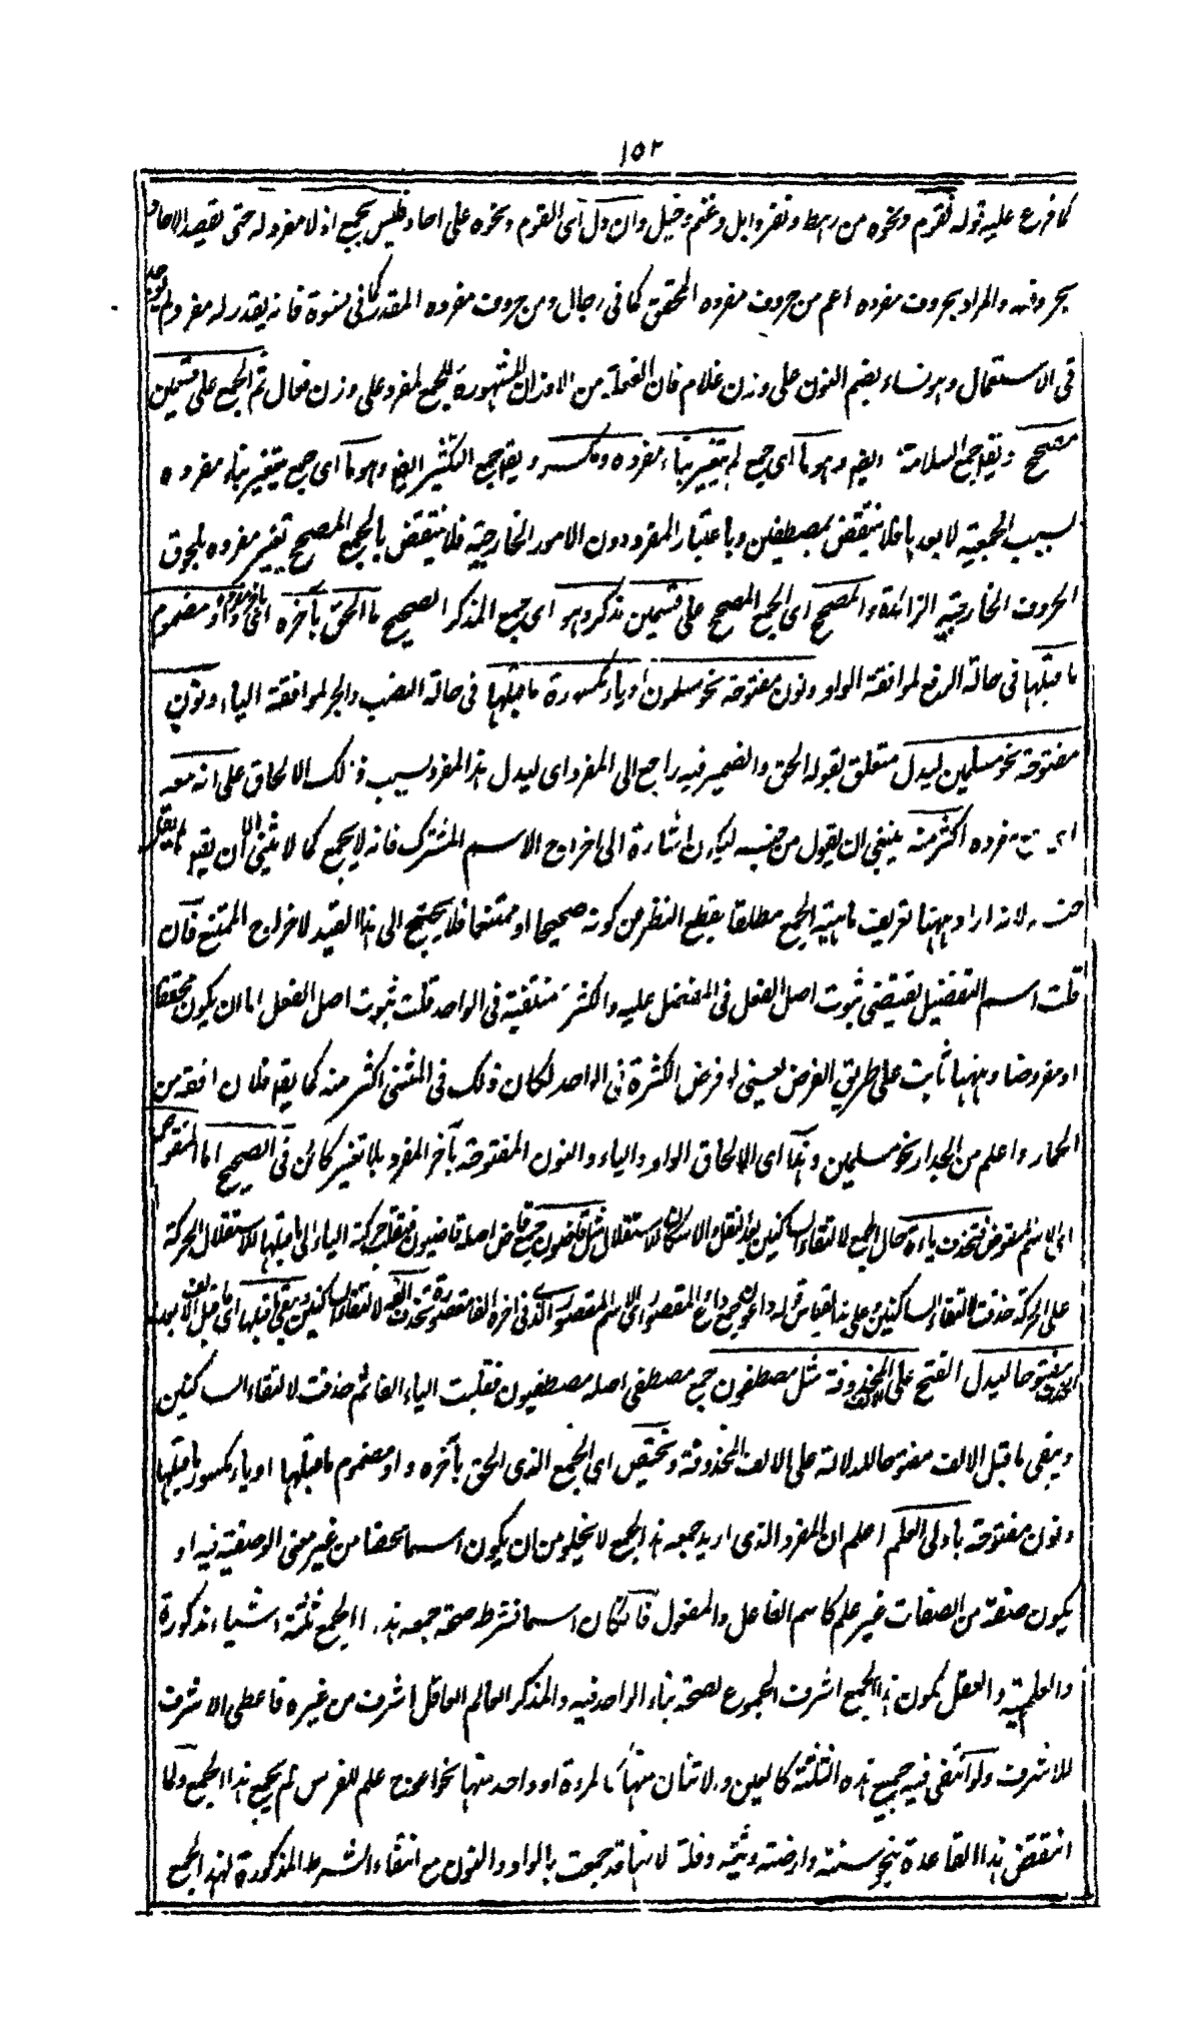 ١٥٢
كما فرع عليه قوله فقوم ونحوه من رهط ونفر وابل وغنم وخيل وان دل اى القوم ونحوه على احاد فليس بجمع اذ لا مفرد له حتى يقصد الاحاد
بحروفه والمراد بحروف مفرده اعم من حروف مفرده المحقق كما فى رجال ومن حروف مفرده المقدر كما فى نسوة فانه يقدر له مفرد لم يوجد
فى الاستعمال وهو نساء بضم النون على وزن غلام فان الفعلة من الاوزان المشهورة للجمع لمفرد على وزن فعال ثم الجمع على قسمين
مصحح ويقه جمع السلامة ايضا وهو ما اى جمع لم يتغير بناء مفرده ومكسر ويقه جمع التكثير ايضا وهو ما اى جمع يتغير بناء مفرده
لسبب الجمعية لا بعدها فلا ينتقض بمصطفين وباعتبار المفرد دون الامور الخارجية فلا ينتقض بالجمع المصحح بتغير مفرده بلحوق
الحروف الخارجية الزائدة والمصحح اى الجمع المصحح على قسمين مذكر وهو اى جمع المذكر الصحيح ما الحق بآخره اى واو مضموم
ما قبلها فى حالة الرفع لموافقة الواو ونون مفتوحة نحو مسلمون او ياء مكسورة ما قبلها فى حالة النصب والجر لموافقة الياء ونون
مفتوحة نحو مسلمين ليدل متعلق بقوله الحق والضمير فيه راجع الى المفرد اى ليدل هذا المفرد بسبب ذلك الالحاق على انه معه
اى مع مفرده اكثر منه ينبغى ان يقول من جنسه ليكون اشارة الى اخراج الاسم المشترك فانه لا يجمع كما لا يثنى الا ان يقه
جنسه لانه اراد ههنا تعريف ماهية الجمع مطلقا بقطع النظر من كونه صحيحا او ممتنعا فلا يحتج الى هذا القيد لاخراج الممتنع فان
قلت اسم التفضيل يقتضى ثبوت اصل الفعل فى المفضل عليه والكثرة منتفية فى الواحد قلت ثبوت اصل الفعل اما ان يكون محققا
او مفروضا وههنا ثابت على طريق الفرض يعنى لو فرض الكثرة فى الواحد لكان ذلك فى المثنى اكثر منه كما يقه فلان افقه من
الحمار واعلم من الجدار نحو مسلمين وهذا اى الالحاق الواو والياء والنون المفتوحة بآخر المفرد بلا تغير كائن فى الصحيح اما المنقوص
اى الاسم المنقوص فتحذف ياءه حال الجمع لالتقاء الساكنين بعد النقل والاسكان للاستثقال مثل قاضون جمع قاض اصله قاضيون فنقلت حركة الياء الى ما قبلها للاستثقال الحركة
على الحركة حذفت لالتقاء الساكنين وعلى هذا القياس قوله داعون جمع داع والمقصور اى الاسم المقصور الذى فى اخره الف مقصورة تحذف الفه لالتقاء الساكنين ويبقى ما قبلها اى ما قبل الالف بعد
الحذف مفتوحا ليدل الفتح على الالف المحذوفة مثل مصطفون جمع مصطفى اصله مصطفيون فقلبت الياء الفا ثم حذفت لالتقاء الساكنين
ويبقى ما قبل الالف مفتوحا للدلالة على الالف المحذوفة ويختص اى الجمع الذى الحق بآخره واو مضموم ما قبلها او ياء مكسور ما قبلها
ونون مفتوحة باولى العلم اعلم ان المفرد الذى اريد جمعه هذا الجمع لا يخلو من ان يكون اسما محضا من غير معنى الوصفية فيه او
يكون صفة من الصفات غير علم كاسم الفاعل والمفعول فان كان اسما فشرط صحة جمعه هذا الجمع ثلثة اشياء مذكورة
والعلمية والعقل لكون هذا الجمع اشرف الجموع لصحة بناء الواحد فيه والمذكر العالم العاقل اشرف من غيره فاعطى الاشرف
للاشرف ولو انتفى فيه جميع هذه الثلثة كالعين ولا اثنان منها كالمروة او واحد منها نحو اعوج علم للفرس لم يجمع هذا الجمع ولما
انتقض هذا القاعدة بنحو سنة وارضة وثبة وقلة لانها قد جمعت بالواو والنون مع انتفاء الشرط المذكورة لهذا الجمع